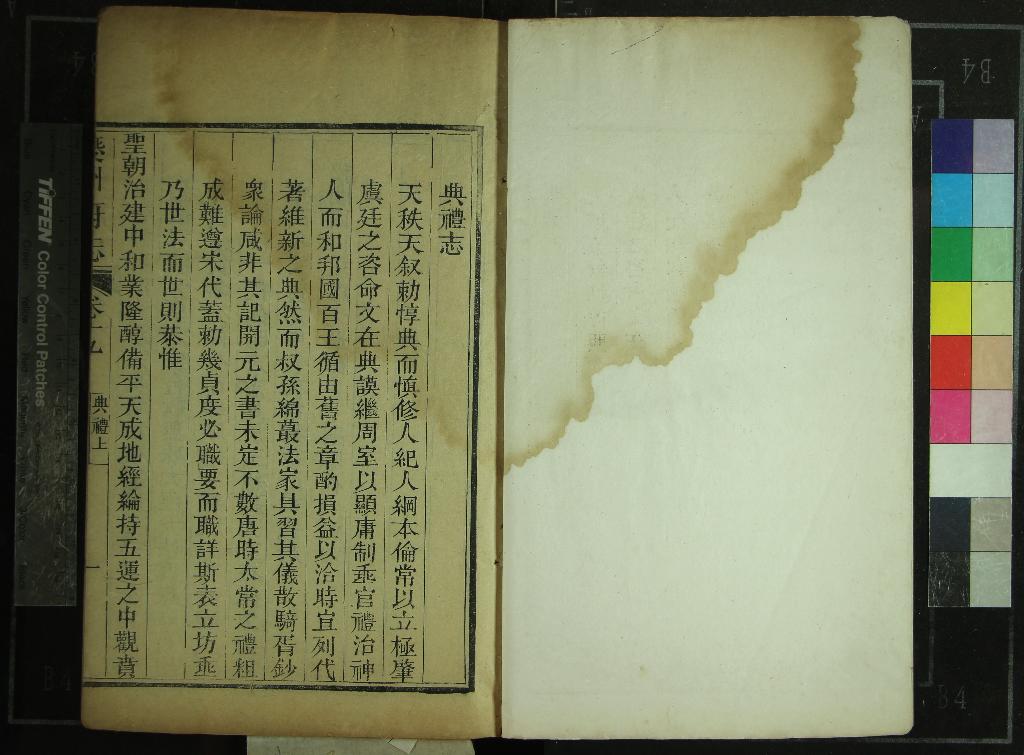 典禮志
天秩天叙勅惇典而慎修人紀人綱本倫常以立極肇
虞廷之咨命文在典謨繼周室以顯庸制垂官禮治神
人而和邦國百王循由舊之章酌損益以洽時宜列代
著維新之典然而叔孫綿蕞法家具習其儀散騎胥鈔
衆論咸非其記開元之書未定不數唐時太常之禮粗
成難遵宋代蓋勅幾貞度必職要而職詳斯表立坊垂
乃世法而世則恭惟
聖朝治建中和業隆醇備平天成地經綸持五運之中觀賁
州府志
卷十九
典禮上
一
TIFFEN Color Control Patches
B4
B4
B4